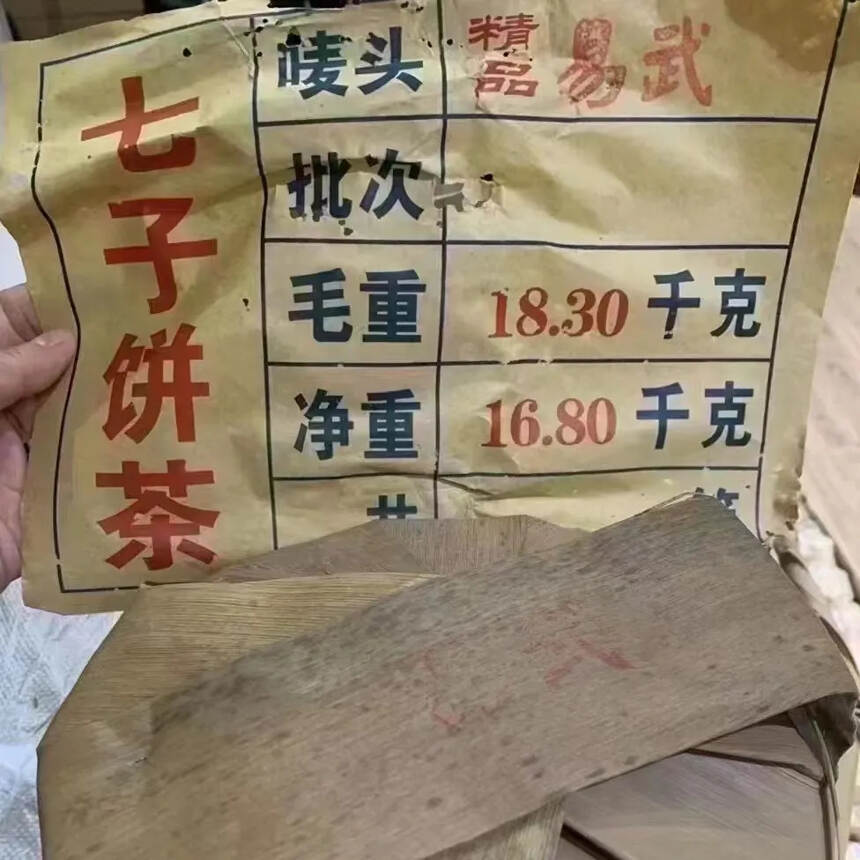 七子饼茶
唛头 精品 易武
批次
毛重 18.30 千克
净重 16.80 千克